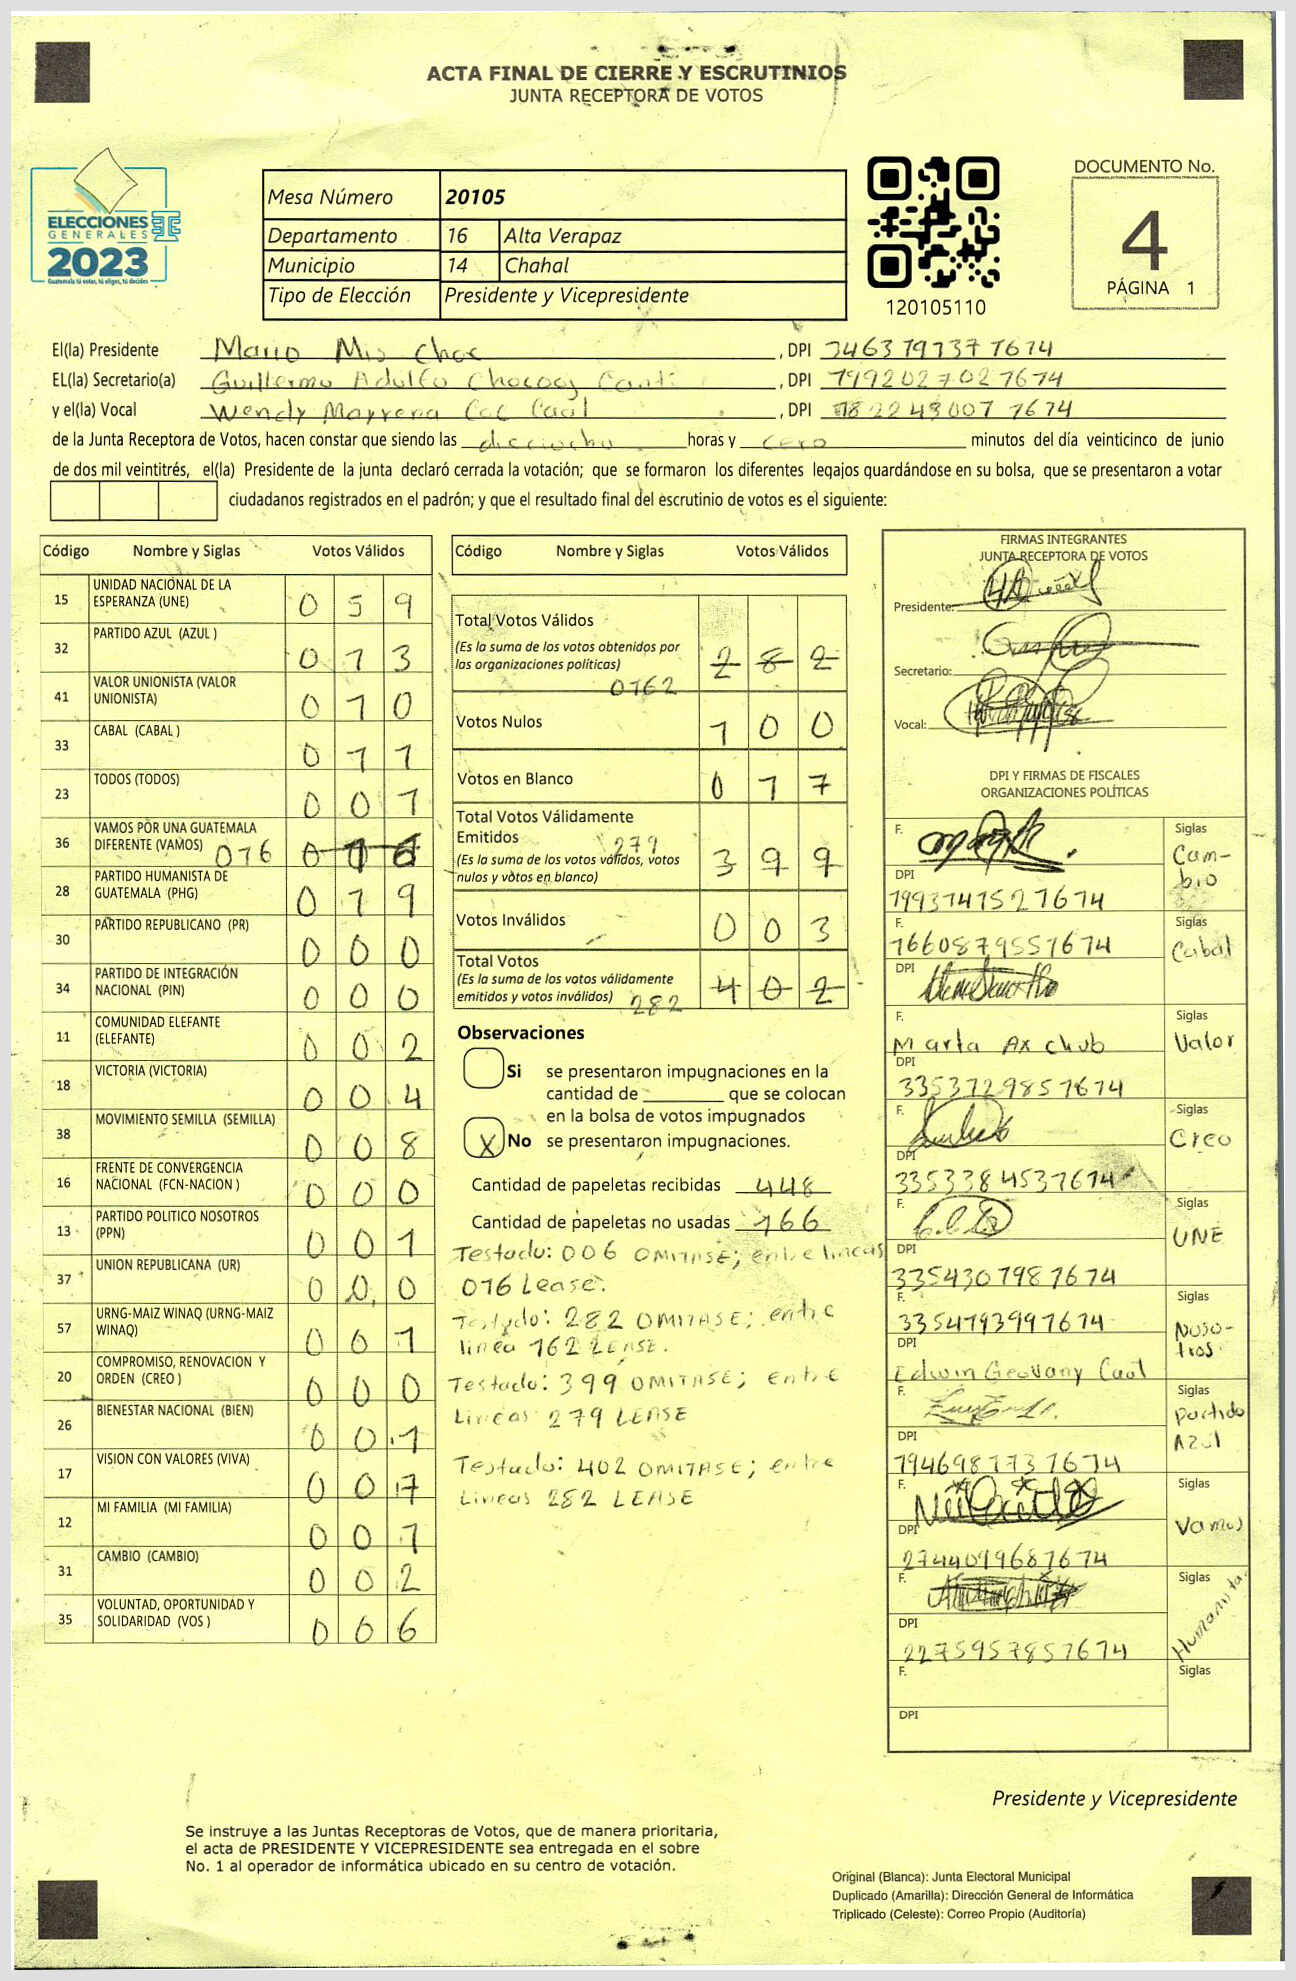 ACTA FINAL DE CIERRE Y ESCRUTINIOS
JUNTA RECEPTORA DE VOTOS
ELECCIONES
GENERALES
2023
Guatemala tú votas, tú eliges, tú decides
Mesa Número 20105
Departamento 16 Alta Verapaz
Municipio 14 Chahal
Tipo de Elección Presidente y Vicepresidente
120105110
DOCUMENTO No.
4
PÁGINA 1
El(la) Presidente Mario Mis Choc , DPI
EL(la) Secretario(a) Guillermo Adulfo Chocooj Cantí , DPI 1992027027674
y el(la) Vocal Wendy Mayrena Coc Caal , DPI
de la Junta Receptora de Votos, hacen constar que siendo las dieciocho horas y cero minutos del día veinticinco de junio
de dos mil veintitrés, el(la) Presidente de la junta declaró cerrada la votación; que se formaron los diferentes legajos guardándose en su bolsa, que se presentaron a votar
ciudadanos registrados en el padrón; y que el resultado final del escrutinio de votos es el siguiente:
Código Nombre y Siglas Votos Válidos
15 UNIDAD NACIONAL DE LA ESPERANZA (UNE) 0 5 9
32 PARTIDO AZUL (AZUL ) 0 1 3
41 VALOR UNIONISTA (VALOR UNIONISTA) 0 1 0
33 CABAL (CABAL ) 0 1 1
23 TODOS (TODOS) 0 0 1
36 VAMOS POR UNA GUATEMALA DIFERENTE (VAMOS) 016
28 PARTIDO HUMANISTA DE GUATEMALA (PHG) 0 1 9
30 PARTIDO REPUBLICANO (PR) 0 0 0
34 PARTIDO DE INTEGRACIÓN NACIONAL (PIN) 0 0 0
11 COMUNIDAD ELEFANTE (ELEFANTE) 0 0 2
18 VICTORIA (VICTORIA) 0 0 4
38 MOVIMIENTO SEMILLA (SEMILLA) 0 0 8
16 FRENTE DE CONVERGENCIA NACIONAL (FCN-NACION ) 0 0 0
13 PARTIDO POLITICO NOSOTROS (PPN) 0 0 1
37 UNION REPUBLICANA (UR) 0 0 0
57 URNG-MAIZ WINAQ (URNG-MAIZ WINAQ) 0 0 1
20 COMPROMISO, RENOVACION Y ORDEN (CREO ) 0 0 0
26 BIENESTAR NACIONAL (BIEN) 0 0 1
17 VISION CON VALORES (VIVA) 0 0 7
12 MI FAMILIA (MI FAMILIA) 0 0 1
31 CAMBIO (CAMBIO) 0 0 2
35 VOLUNTAD, OPORTUNIDAD Y SOLIDARIDAD (VOS ) 0 0 6
Código Nombre y Siglas Votos Válidos
Total Votos Válidos
(Es la suma de los votos obtenidos por
las organizaciones políticas) 2 8 2
0162
Votos Nulos 1 0 0
Votos en Blanco 0 1 7
Total Votos Válidamente
Emitidos 279
(Es la suma de los votos válidos, votos
nulos y votos en blanco) 3 9 9
Votos Inválidos 0 0 3
Total Votos
(Es la suma de los votos válidamente
emitidos y votos inválidos) 282 4 0 2
Observaciones
Si se presentaron impugnaciones en la
cantidad de ________ que se colocan
en la bolsa de votos impugnados
X No se presentaron impugnaciones.
Cantidad de papeletas recibidas 448
Cantidad de papeletas no usadas 166
Testado: 006 OMITASE; entre lineas
016 Lease.
Testado: 282 OMITASE; entre
linea 162 LEASE.
Testado: 399 OMITASE; entre
Lineas 279 LEASE
Testado: 402 OMITASE; entre
Lineas 282 LEASE
FIRMAS INTEGRANTES
JUNTA RECEPTORA DE VOTOS
Presidente:
Secretario:
Vocal:
DPI Y FIRMAS DE FISCALES
ORGANIZACIONES POLÍTICAS
F. Siglas
Cambio
DPI
1993747527674
F. Siglas
1660879551674 Cabal
DPI
F. Siglas
Marta Ax Chub Valor
DPI
3353729857674
F. Siglas
Creo
DPI
3353384537674
F. Siglas
UNE
DPI
3354307987674
F. Siglas
3354793997674 Nosotros
DPI
Edwin Geovany Caal
F. Siglas
Partido Azul
DPI
1946987737674
F. Siglas
Vamos
DPI
2744099687674
F. Siglas
Humanista
DPI
2275957857674
F. Siglas
DPI
Presidente y Vicepresidente
Se instruye a las Juntas Receptoras de Votos, que de manera prioritaria,
el acta de PRESIDENTE Y VICEPRESIDENTE sea entregada en el sobre
No. 1 al operador de informática ubicado en su centro de votación.
Original (Blanca): Junta Electoral Municipal
Duplicado (Amarilla): Dirección General de Informática
Triplicado (Celeste): Correo Propio (Auditoría)